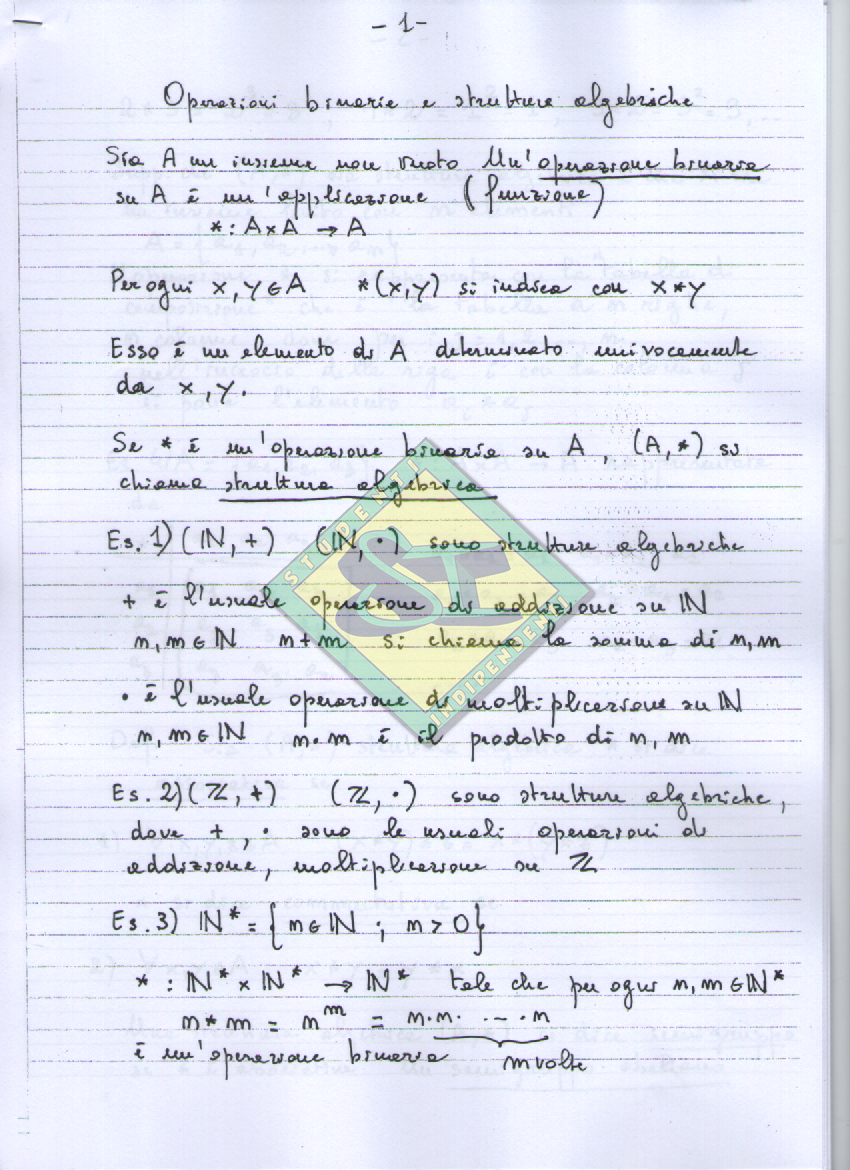 - 1 -
Operazioni binarie e strutture algebriche
Sia A un insieme non vuoto Un'operazione binaria
su A è un'applicazione (funzione)
* : A×A → A
Per ogni x, y ∈ A *(x,y) si indica con x*y
Esso è un elemento di A determinato univocamente
da x, y.
Se * è un'operazione binaria su A, (A,*) si
chiama struttura algebrica
STUDENTI
SI
INDIPENDENTI
Es. 1) (ℕ, +) (ℕ, ·) sono strutture algebriche
+ è l'usuale operazione di addizione su ℕ
n, m ∈ ℕ n+m si chiama la somma di n, m
· è l'usuale operazione di moltiplicazione su ℕ
n, m ∈ ℕ n·m è il prodotto di n, m
Es. 2) (ℤ, +) (ℤ, ·) sono strutture algebriche,
dove +, · sono le usuali operazioni di
addizione, moltiplicazione su ℤ
Es. 3) ℕ* = {n ∈ ℕ ; n > 0}
* : ℕ* × ℕ* → ℕ* tale che per ogni n, m ∈ ℕ*
n*m = nᵐ = n·n· -- ·n
è un'operazione binaria m volte